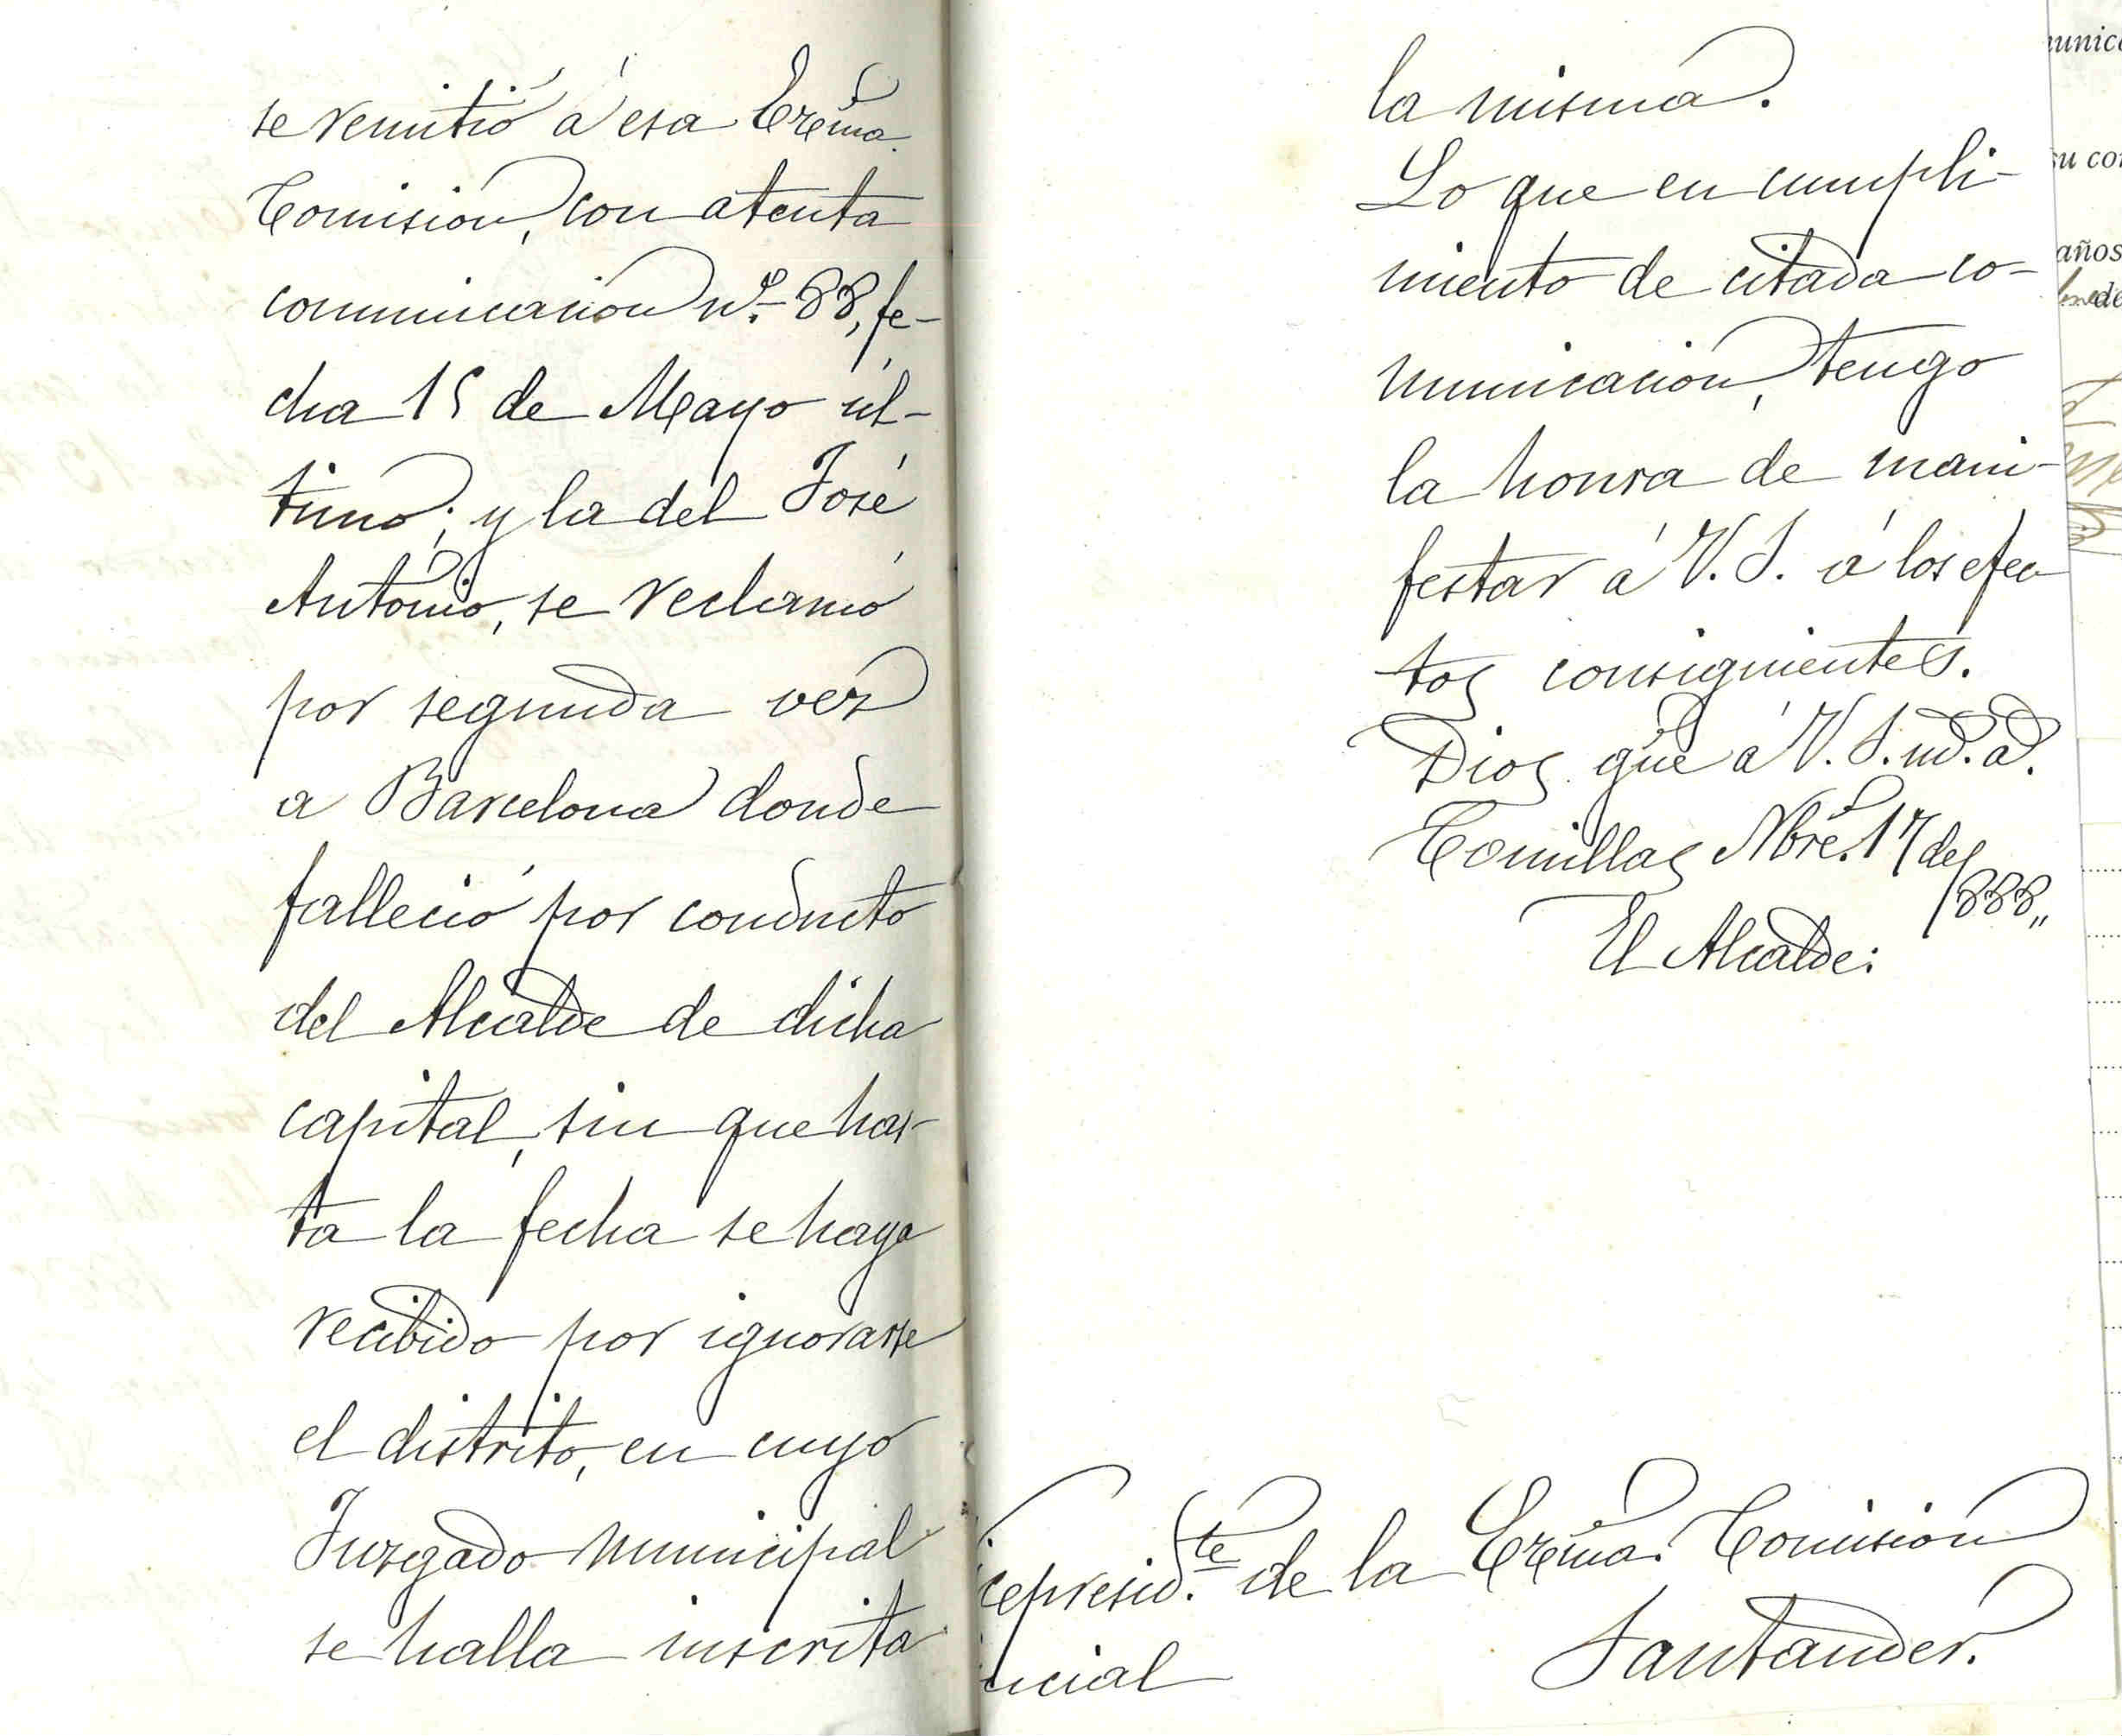 se remitió á esa Excma.
Comision, con atenta
comunicacion nº 88, fe-
cha 15 de Mayo úl-
timo; y la del José
Antonio, se reclamó
por segunda vez
a Barcelona donde
falleció por conducto
del Alcalde de dicha
capital, sin que has-
ta la fecha se haya
recibido por ignorarse
el distrito, en cuyo
Juzgado municipal
se halla inscrita
la misma.
Lo que en cumpli-
miento de citada co-
municacion, tengo
la honra de mani-
festar á V. S. á los efec
tos consiguientes.
Dios gue á V. S. m.s a.s
Comillas Nbre. 17 de
1888.,
El Alcalde:
icepresid.te de la Excma. Comision
ncial
Santander.
unica
su con
años
de